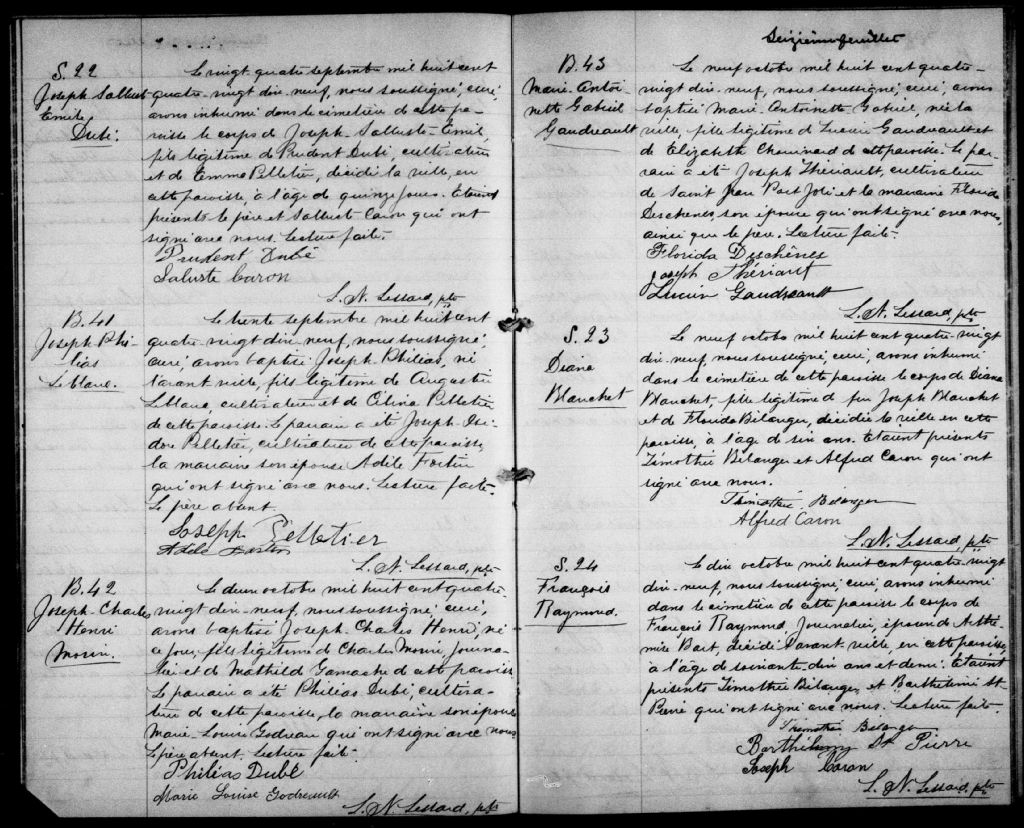 S. 22
Joseph Sallust
Emile
Dubé.
Le vingt quatre septembre mil huit cent
quatre-vingt dix-neuf, nous soussigné, curé,
avons inhumé dans le cimetière de cette pa-
roisse le corps de Joseph Salluste Emil
fils légitime de Prudent Dubé, cultivateur
et de Emma Pelletier, décédé la veille, en
cette paroisse, à l'âge de quinze jours. Etaient
présents le père et Sallust Caron qui ont
signé avec nous. Lecture faite.
Prudent Dubé
Saluste Caron
L. N. Lessard, ptre
B. 41
Joseph Phi-
lias
Leblanc.
Le trente septembre mil huit cent
quatre-vingt dix-neuf, nous soussigné,
curé, avons baptisé Joseph Philias, né
l'avant veille, fils légitime de Augustin
Leblanc, cultivateur et de Célina Pelletier
de cette paroisse. Le parrain a été Joseph Isi-
dore Pelletier, cultivateur de cette paroisse,
la marraine son épouse Adèle Fortin
qui ont signé avec nous. Lecture faite.
Le père absent.
Joseph Pelletier
Adèle Fortin
L. N. Lessard, ptre
B. 42
Joseph-Charles
Henri
Morin.
Le deux octobre mil huit cent quatre-
vingt dix-neuf, nous soussigné, curé,
avons baptisé Joseph Charles Henri, né
ce jour, fils légitime de Charles Morin, journa-
lier et de Mathild Gamache de cette paroisse
Le parrain a été Philias Dubé, cultiva-
teur de cette paroisse, la marraine son épouse
Marie-Louise Godreau qui ont signé avec nous
Le père absent. Lecture faite.
Philias Dubé
Marie Louise Godreault
L. N. Lessard, ptre
Seizième feuillet
B. 43
Marie-Antoi-
nette Gabriel
Gaudreault
Le neuf octobre mil huit cent quatre-
vingt dix-neuf, nous soussigné, curé, avons
baptisé Marie Antoinette Gabriel, née la
veille, fille légitime de Lucien Gaudreault et
de Elizabeth Chouinard de cette paroisse. Le par-
rain a été Joseph Thériault, cultivateur
de Saint Jean Port Joli et la marraine Florida
Deschenes, son épouse qui ont signé avec nous,
ainsi que le père. Lecture faite.
Florida Deschênes
Joseph Thériault
Lucien Gaudreault
L. N. Lessard, ptre
S. 23
Diana
Blanchet
Le neuf octobre mil huit cent quatre-vingt
dix-neuf, nous soussigné, curé, avons inhumé
dans le cimetière de cette paroisse le corps de Diana
Blanchet fille légitime de feu Joseph Blanchet
et de Florida Bélanger, décédée la veille en cette
paroisse, à l'âge de six ans. Etaient présents
Timothée Bélanger et Alfred Caron qui ont
signé avec nous.
Thimothé Bélanger
Alfred Caron
L. N. Lessard, ptre
S. 24
François
Raymond.
Le dix octobre mil huit cent quatre-vingt
dix-neuf, nous soussigné, curé, avons inhumé
dans le cimetière de cette paroisse le corps de
François Raymond Journalier, époux de Arthé-
mise Bart, décédé l'avant veille, en cette paroisse,
à l'âge de soixante-dix ans et demi. Etaient
présents Timothée Bélanger, et Barthelemi St
Pierre qui ont signé avec nous. Lecture faite.
Thimothé Bélanger
Barthélemy St Pierre
Joseph Caron
L. N. Lessard, ptre